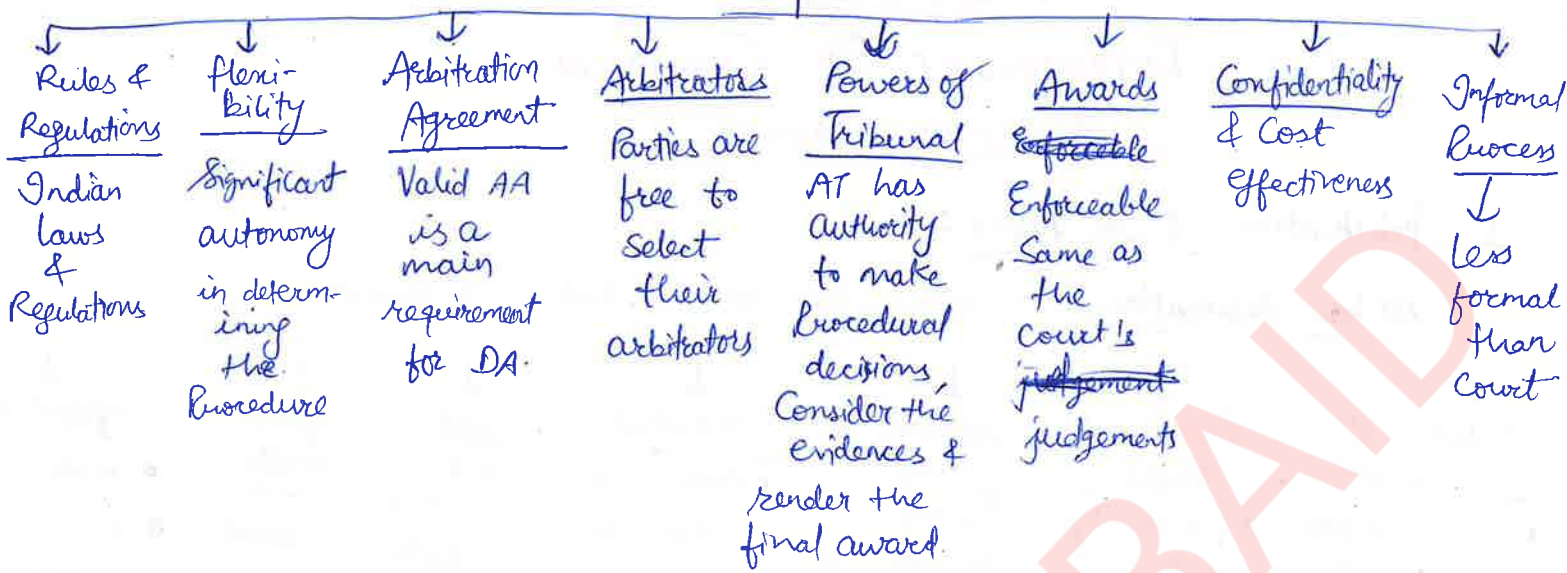 Rules &
Regulations
Indian
laws
&
Regulations
flexi-
bility
Significant
autonomy
in determ-
ining
the
Procedure
Arbitration
Agreement
Valid AA
is a
main
requirement
for DA.
Arbitrators
Parties are
free to
select
their
arbitrators
Powers of
Tribunal
AT has
authority
to make
Procedural
decisions,
Consider the
evidences &
render the
final award.
Awards
Enforceable
Enforceable
Same as
the
Court's
judgement
judgements
Confidentiality
& Cost
effectiveness
Informal
Process
less
formal
than
Court
BAID